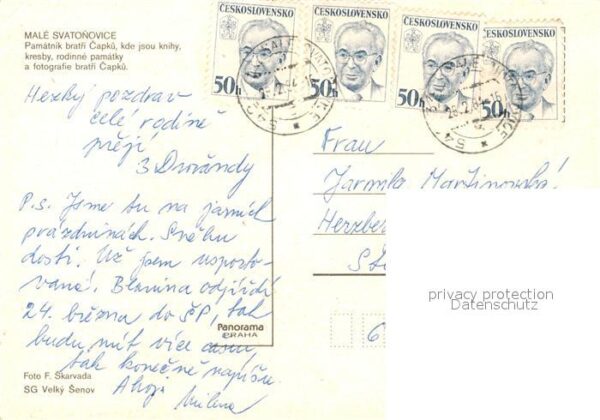 MALÉ SVATOŇOVICE
Památník bratří Čapků, kde jsou knihy,
kresby, rodinné památky
a fotografie bratří Čapků.
ČESKOSLOVENSKO
50h
ČESKOSLOVENSKO
50h
ČESKOSLOVENSKO
50h
ČESKOSLOVENSKO
50h
Hezký pozdrav
celé rodině
přejí
3 Dvořandy
P.s. Jsme tu na jarních
prázdninách. Sněhu
dosti. Už jsem
vaná!. odjíždí
24. března do ŠP, tak
budu mít více času,
tak konečně napíšu.
Ahoj Milena
Frau
Jarmila Martinovská
Herzber
6
Panorama
PRAHA
Foto F. Skarvada
SG Velký Šenov
privacy protection
Datenschutz